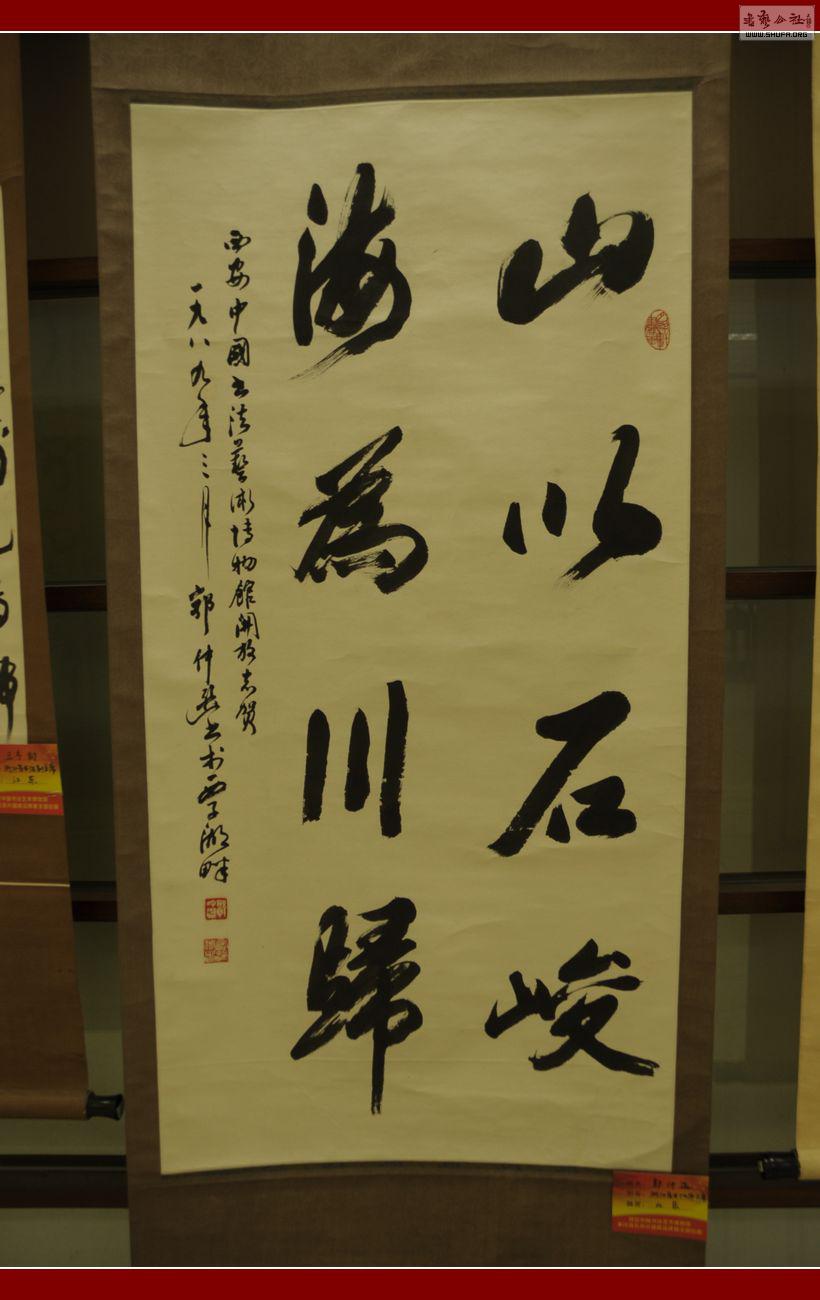 山以石峻
海為川歸
西安中國書法藝術博物館開放志賀
一九八九年三月郭仲選書於西子湖畔
WWW.SHUFA.ORG